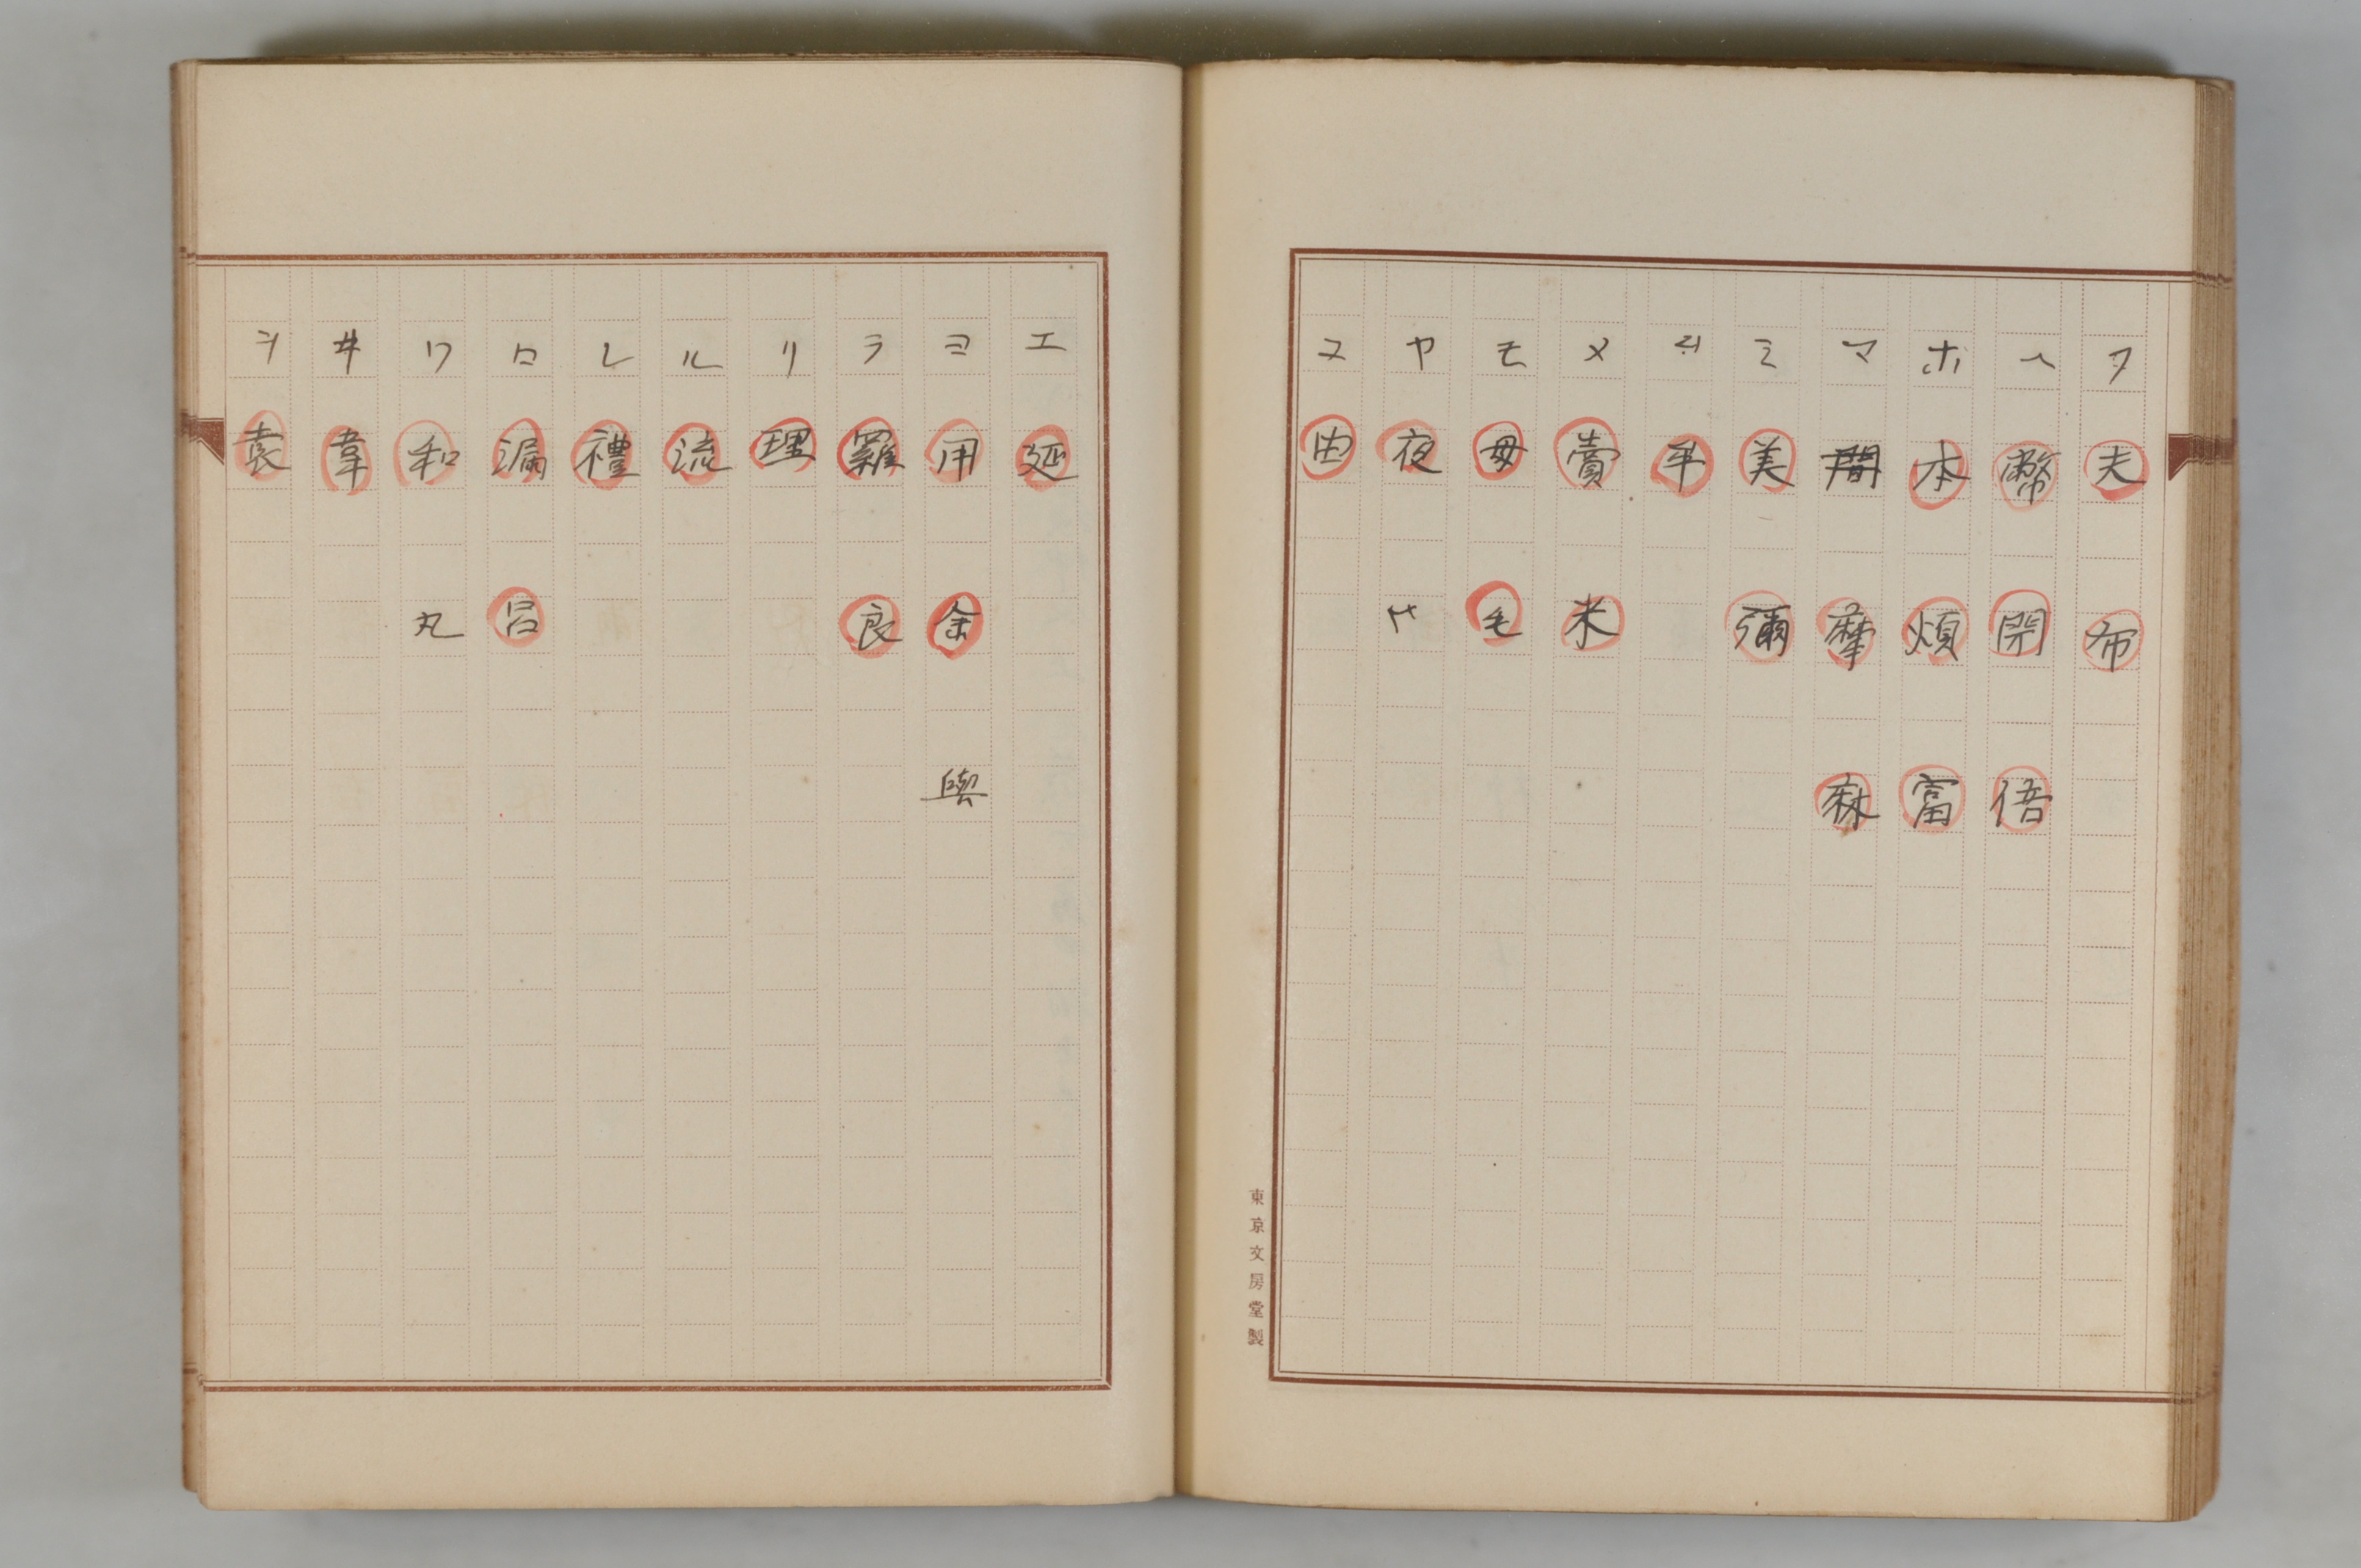 フ 夫 布
ヘ 幣 閇 倍
ホ 本 煩 富
マ 摩 麻
ミ 美 彌
ム 牟
メ 賣 米
モ 母 毛
ヤ 夜 ヤ
ユ 由
東京文房堂製
エ 延
ヨ 用 余 與
ラ 羅 良
リ 理
ル 流
レ 禮
ロ 漏 呂
ワ 和 丸
ヰ 韋
ヲ 袁